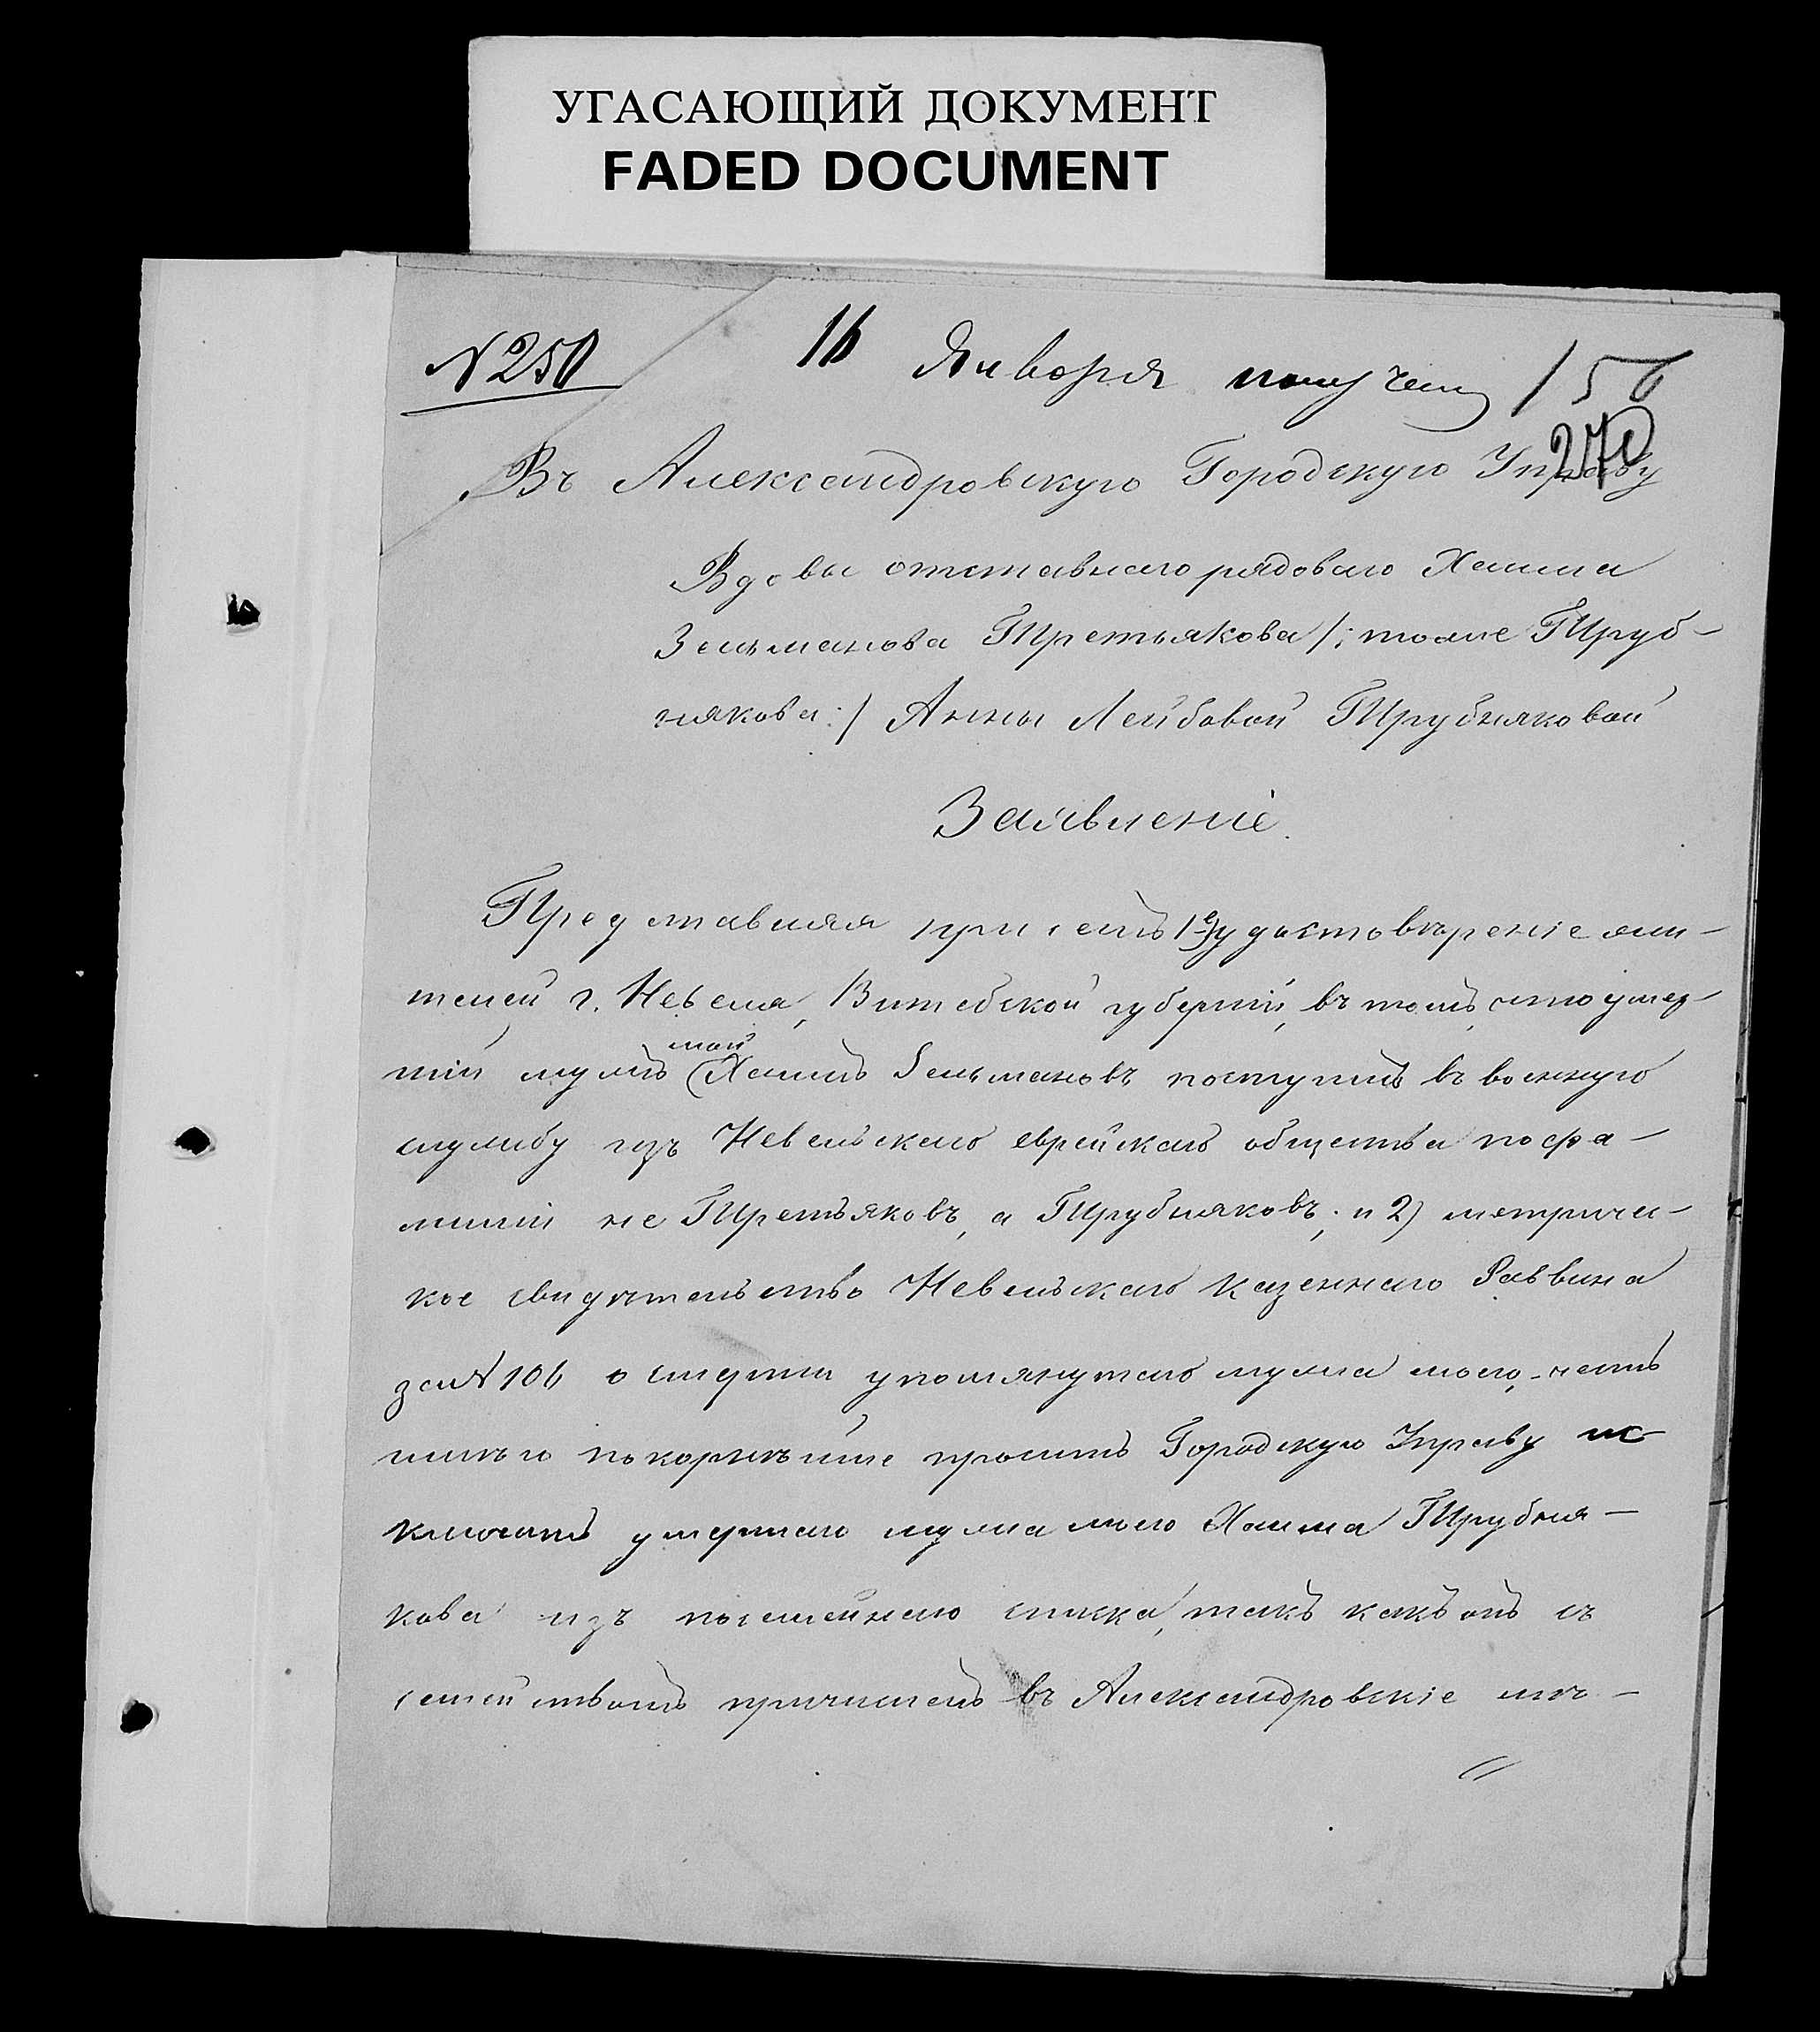 УГАСАЮЩИЙ ДОКУМЕНТ
FADED DOCUMENT
№ 250
16 Января получено 156
270
Въ Александровскую Городскую Управу
Вдовы отставнаго рядоваго Хаима
Зельманова Третьякова /: тоже Труб-
някова :/ Анны Лейбовой Трубняковой
Заявленіе.
Представляя при семъ 1е) удостовѣреніе жи-
телей г. Невеля, Витебской губерніи, въ томъ, что умер-
шій мужъ мой Хаимъ Зельмановъ поступилъ въ военную
службу изъ Невельскаго еврейскаго общества по фа-
миліи не Третьяковъ, а Трубняковъ; и 2) метричес-
кое свидѣтельство Невельскаго Казеннаго Раввина
за № 106 о смерти упомянутаго мужа моего, честь
имѣю покорнѣйше просить Городскую Управу ис-
ключить умершаго мужа моего Хаима Трубня-
кова изъ посемейнаго списка, такъ какъ онъ съ
семействомъ причисленъ въ Александровскіе мѣ-